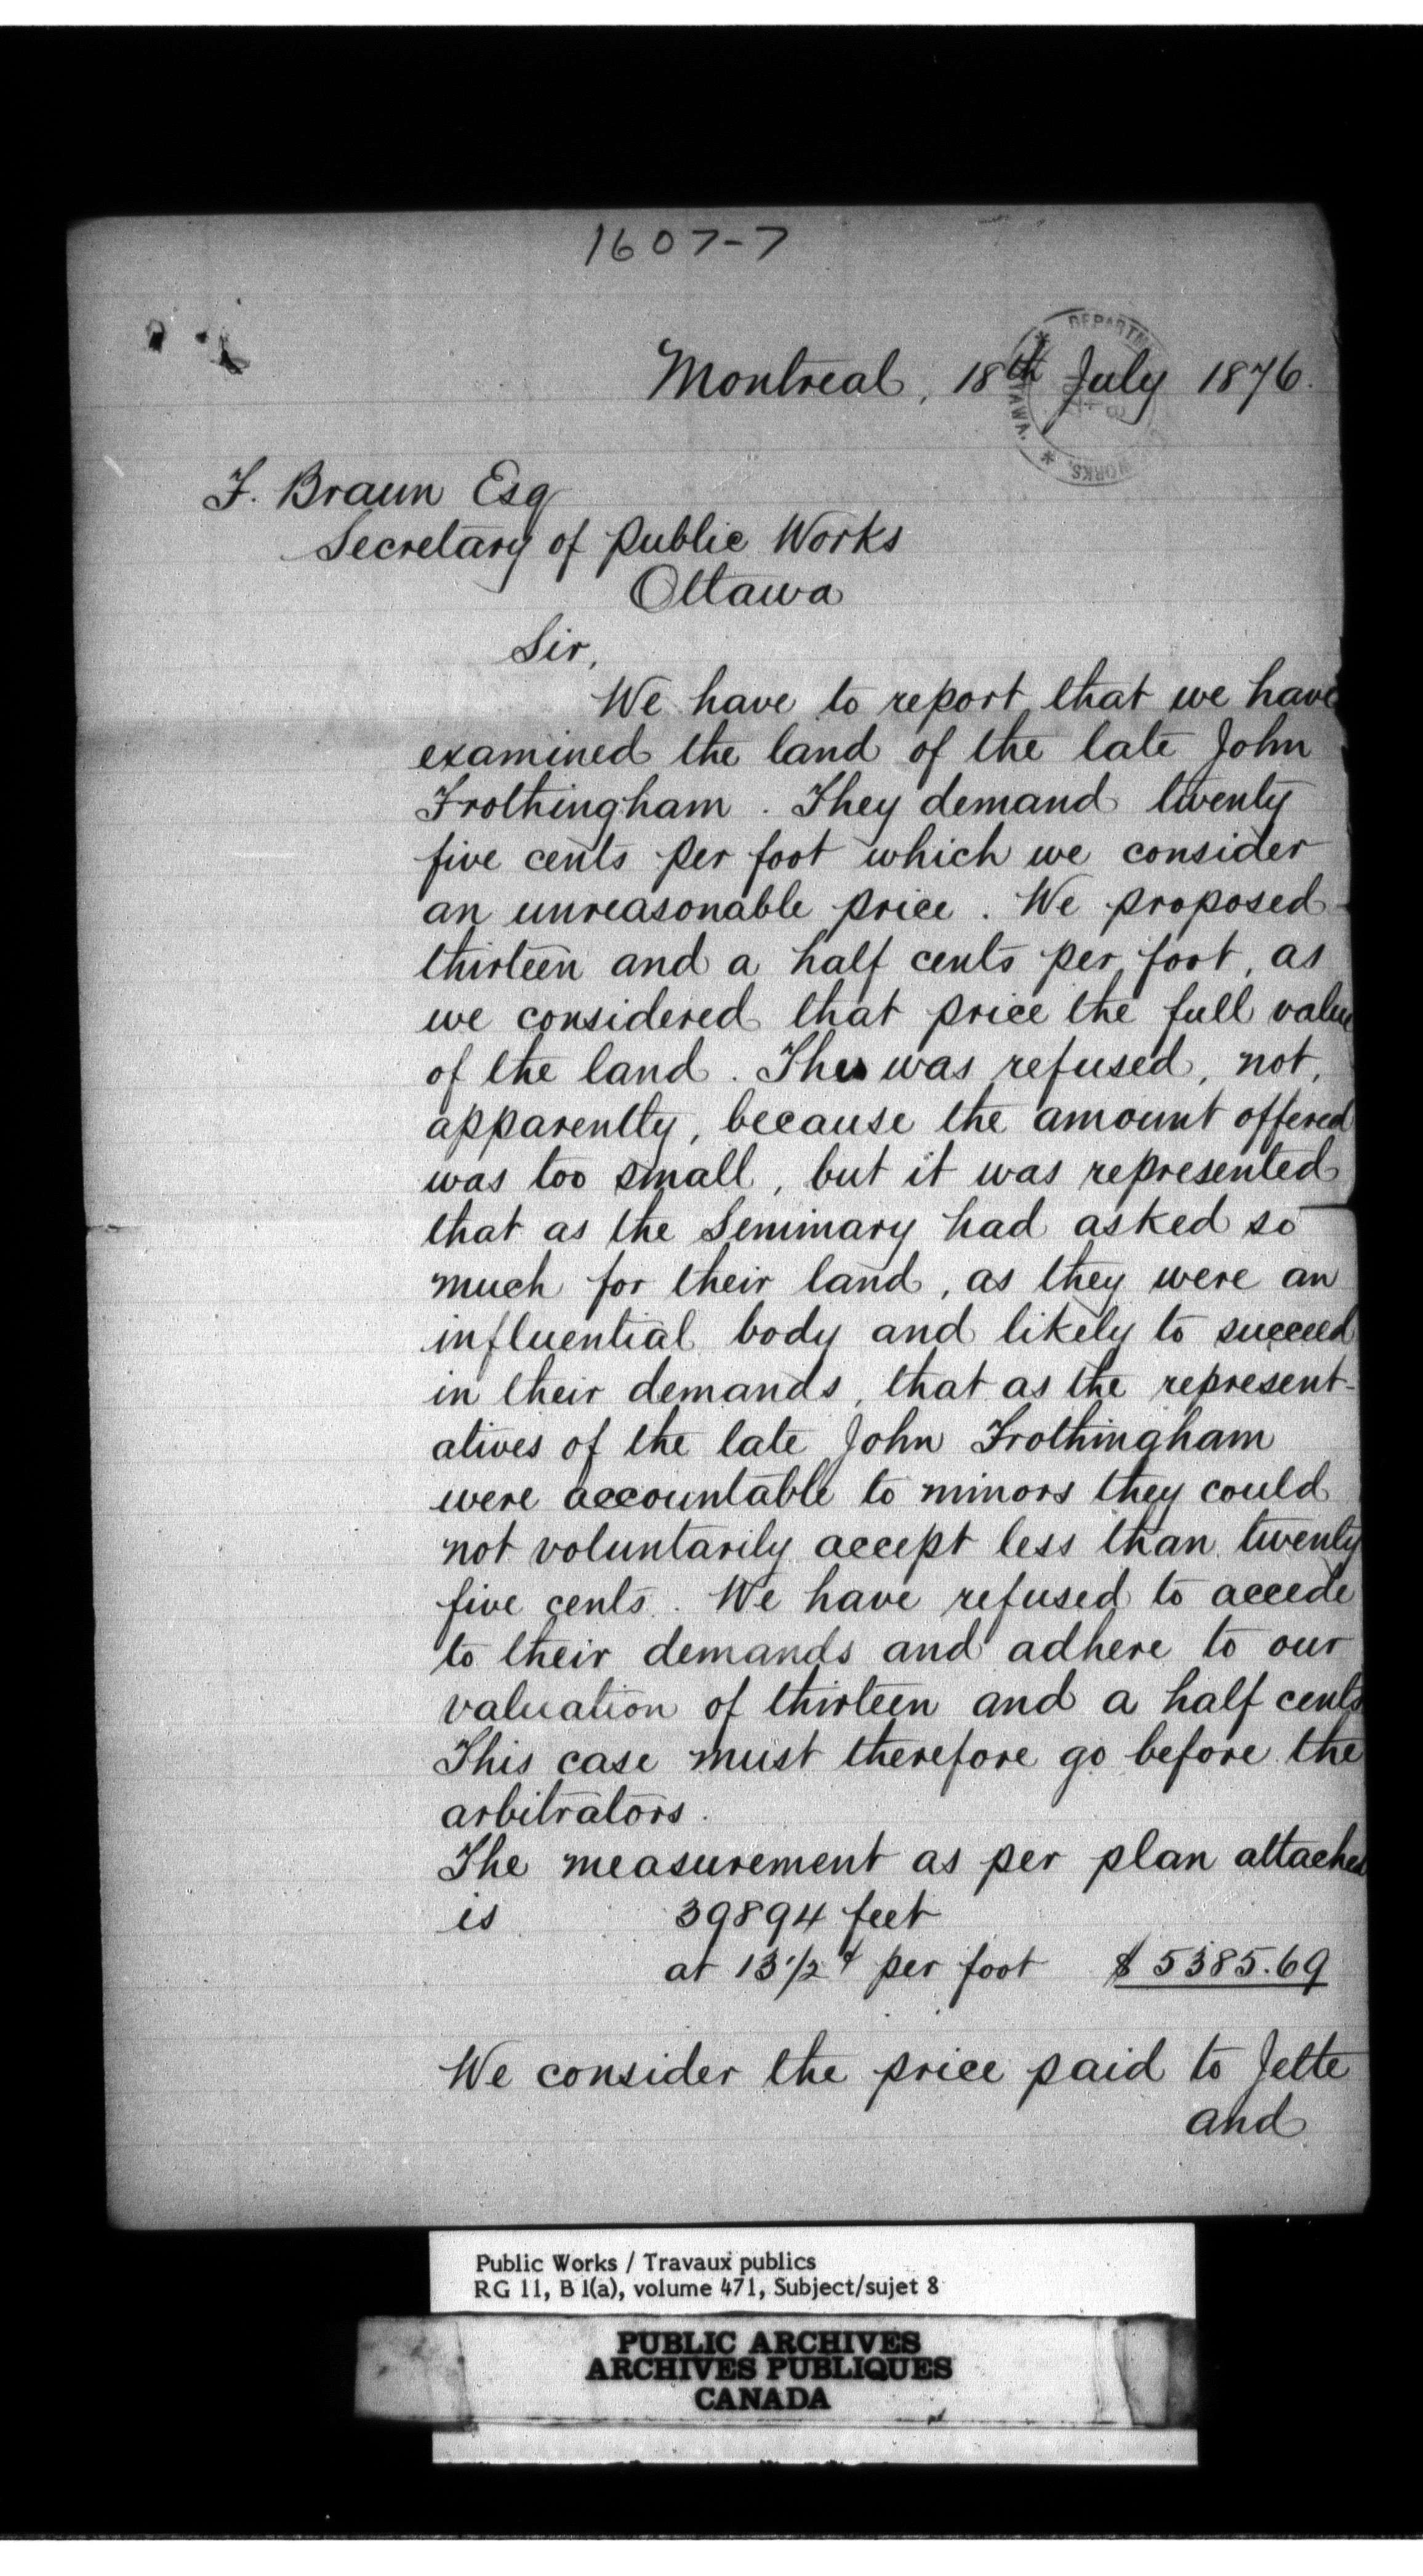 1607-7
DEPARTM
WORKS.
Montreal, 18th July 1876.
F. Braun Esq
Secretary of Public Works
Ottawa
Sir,
We have to report that we have
examined the land of the late John
Frothingham. They demand twenty
five cents per foot which we consider
an unreasonable price. We proposed
thirteen and a half cents per foot, as
we considered that price the full value
of the land. This was refused, not,
apparently, because the amount offered
was too small, but it was represented
that as the Seminary had asked so
much for their land, as they were an
influential body and likely to succeed
in their demands, that as the represent-
atives of the late John Frothingham
were accountable to minors they could
not voluntarily accept less than twenty
five cents. We have refused to accede
to their demands and adhere to our
valuation of thirteen and a half cents
This case must therefore go before the
arbitrators.
The measurement as per plan attached
is 39894 feet
at 13 1/2 ¢ per foot $ 5385.69
We consider the price paid to Jette
and
Public Works / Travaux publics
RG 11, B 1(a), volume 471, Subject/sujet 8
PUBLIC ARCHIVES
ARCHIVES PUBLIQUES
CANADA